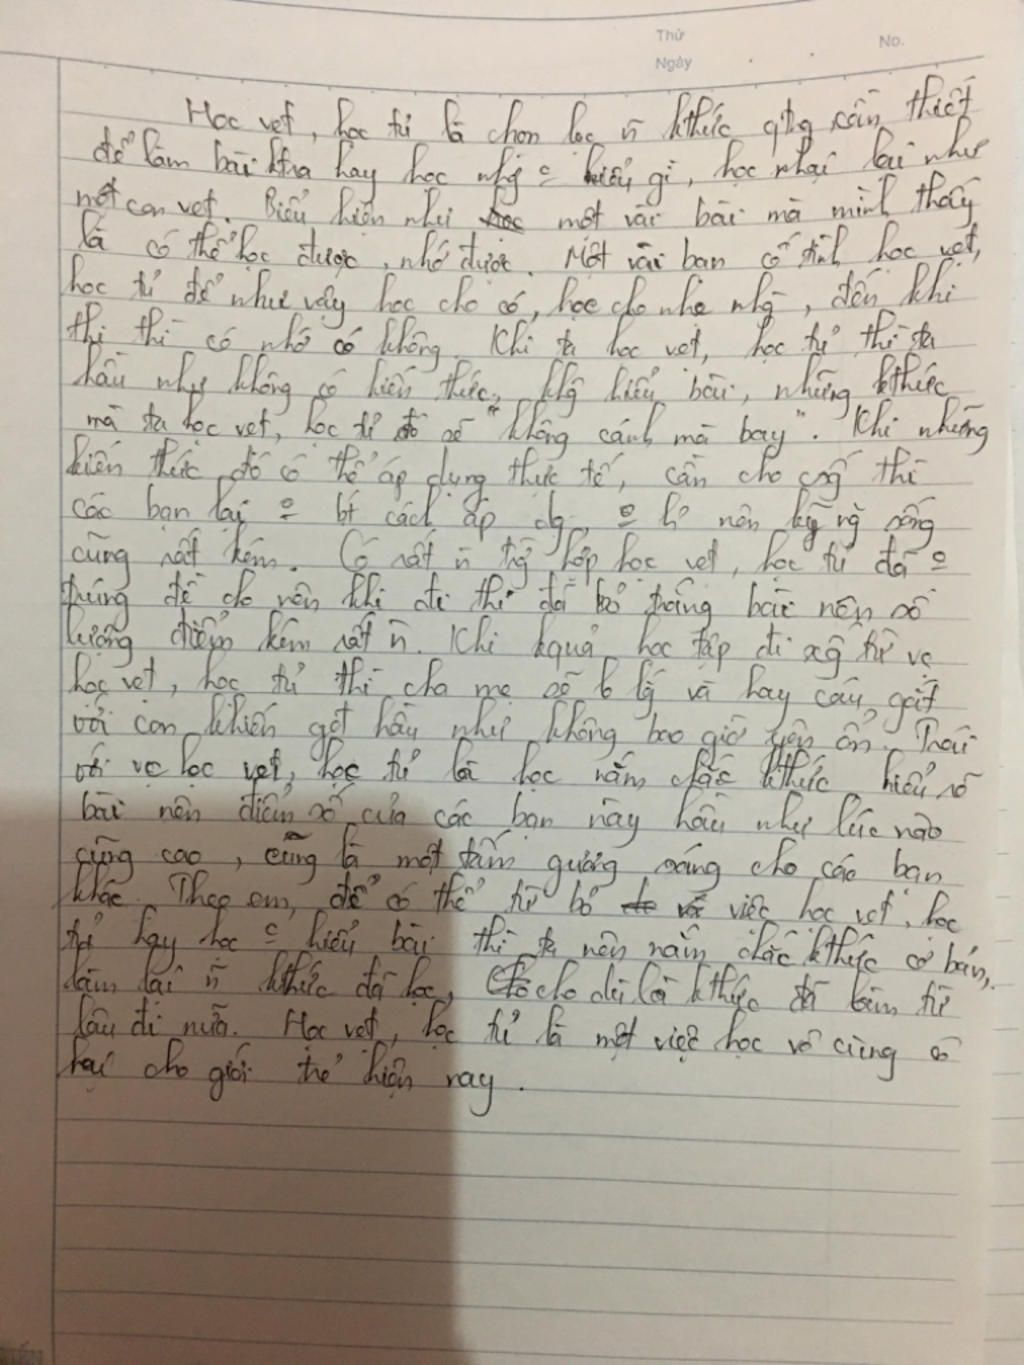 Thứ
No.
Ngày
Học vẹt, học tủ là chọn lọc ñ kthức qtrg cần thiết
để làm bài ktra hay học nhg hiểu gì, học nhại lại như
một con vẹt. Biểu hiện như học một vài bài mà mình thấy
là có thể học được, nhớ được. Một vài bạn cố tình học vẹt,
học tủ để như vậy học cho có, học cho nhẹ nhg, đến khi
thi thì có nhớ có không. Khi ta học vẹt, học tủ thì ta
hầu như không có kiến thức, khg hiểu bài, những kthức
mà ta học vẹt, học tủ đó sẽ "không cánh mà bay". Khi những
kiến thức đó có thể áp dụng thực tế, cần cho csg thì
các bạn lại bt cách áp dg, nên kỹ ng sống
cũng rất kém. Có rất ñ trg hợp học vẹt, học tủ đã
trúng đề cho nên khi đi thi đã bỏ trống bài nên số
lượng điểm kém rất ñ. Khi kquả học tập đi xg từ vc
học vẹt, học tủ thì cha mẹ sẽ và hay cáu gắt
với con khiến gđ hầu như không bao giờ yên ổn. Trái
với vc học vẹt, học tủ là học nắm chắc kthức, hiểu rõ
bài nên điểm số của các bạn này hầu như lúc nào
cũng cao, cũng là một tấm gương sáng cho các bạn
khác. Theo em, để có thể từ bỏ việc học vẹt, học
tủ hay học hiểu bài thì ta nên nắm chắc kthức cơ bản,
làm lại ñ kthức đã học, cho dù là kthức đã làm từ
lâu đi nữa. Học vẹt, học tủ là một việc học vô cùng có
hại cho giới trẻ hiện nay.